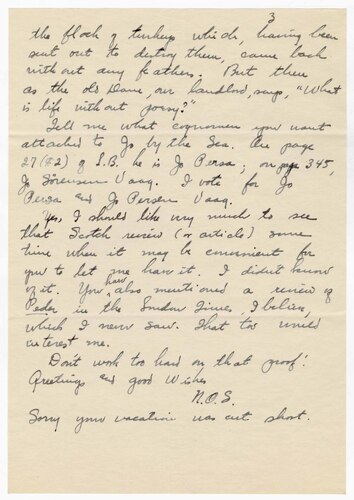 3
the flock of turkeys which, having been
sent out to destroy them, came back
without any feathers. But then
as the old Dane, our landlord, says, "What
is life without poesy?"
Tell me what cognomen you want
attached to Jo by the Sea. On page
27 (#2) of S.B. he is Jo Persa; on page 345,
Jo Sörensen Vaag. I vote for Jo
Persa and Jo Persen Vaag.
Yes, I should like very much to see
that Scotch review (or article) some
time when it may be convenient for
you to let me have it. I didn't know
of it. You have also mentioned a review of
Peder in the London Times, I believe,
which I never saw. That too would
interest me.
Don't work too hard on that proof!
Greetings and good wishes
N.O.S.
Sorry your vacation was cut short.